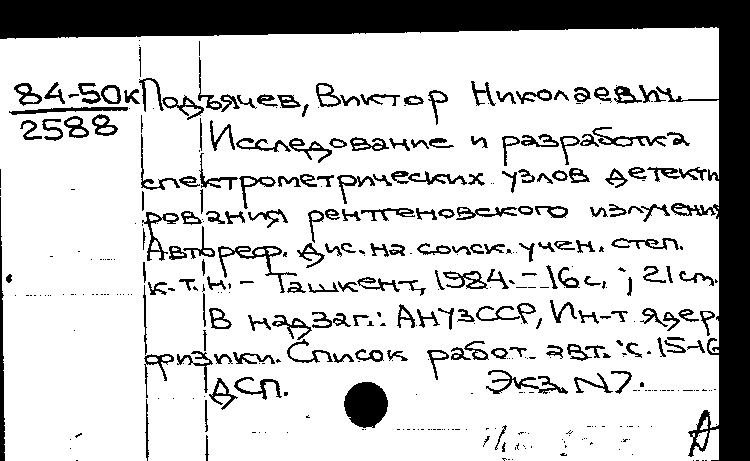 84-50к Подъячев, Виктор Николаевич.
2588
Исследование и разработка
спектрометрических узлов детекти
рования рентгеновского излучения
Автореф. дис. на соиск. учен. степ.
к.т.н. - Ташкент, 1984. - 16 с. ; 21 см.
В надзаг.: АН УзССР, Ин-т ядер.
физики. Список работ. авт.: с. 15-16
ДСП. Экз. N7.